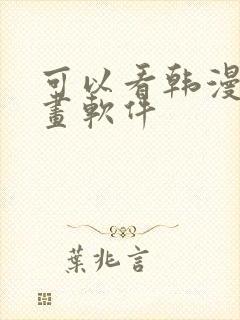 可以看韩漫
畫軟件
葉兆言